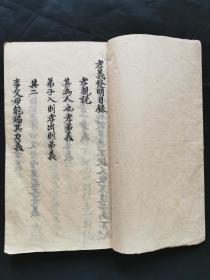 孝義發明目錄
孝親說
其為人也孝弟義
弟子入則孝出則弟義
其二
事父母能竭其力義